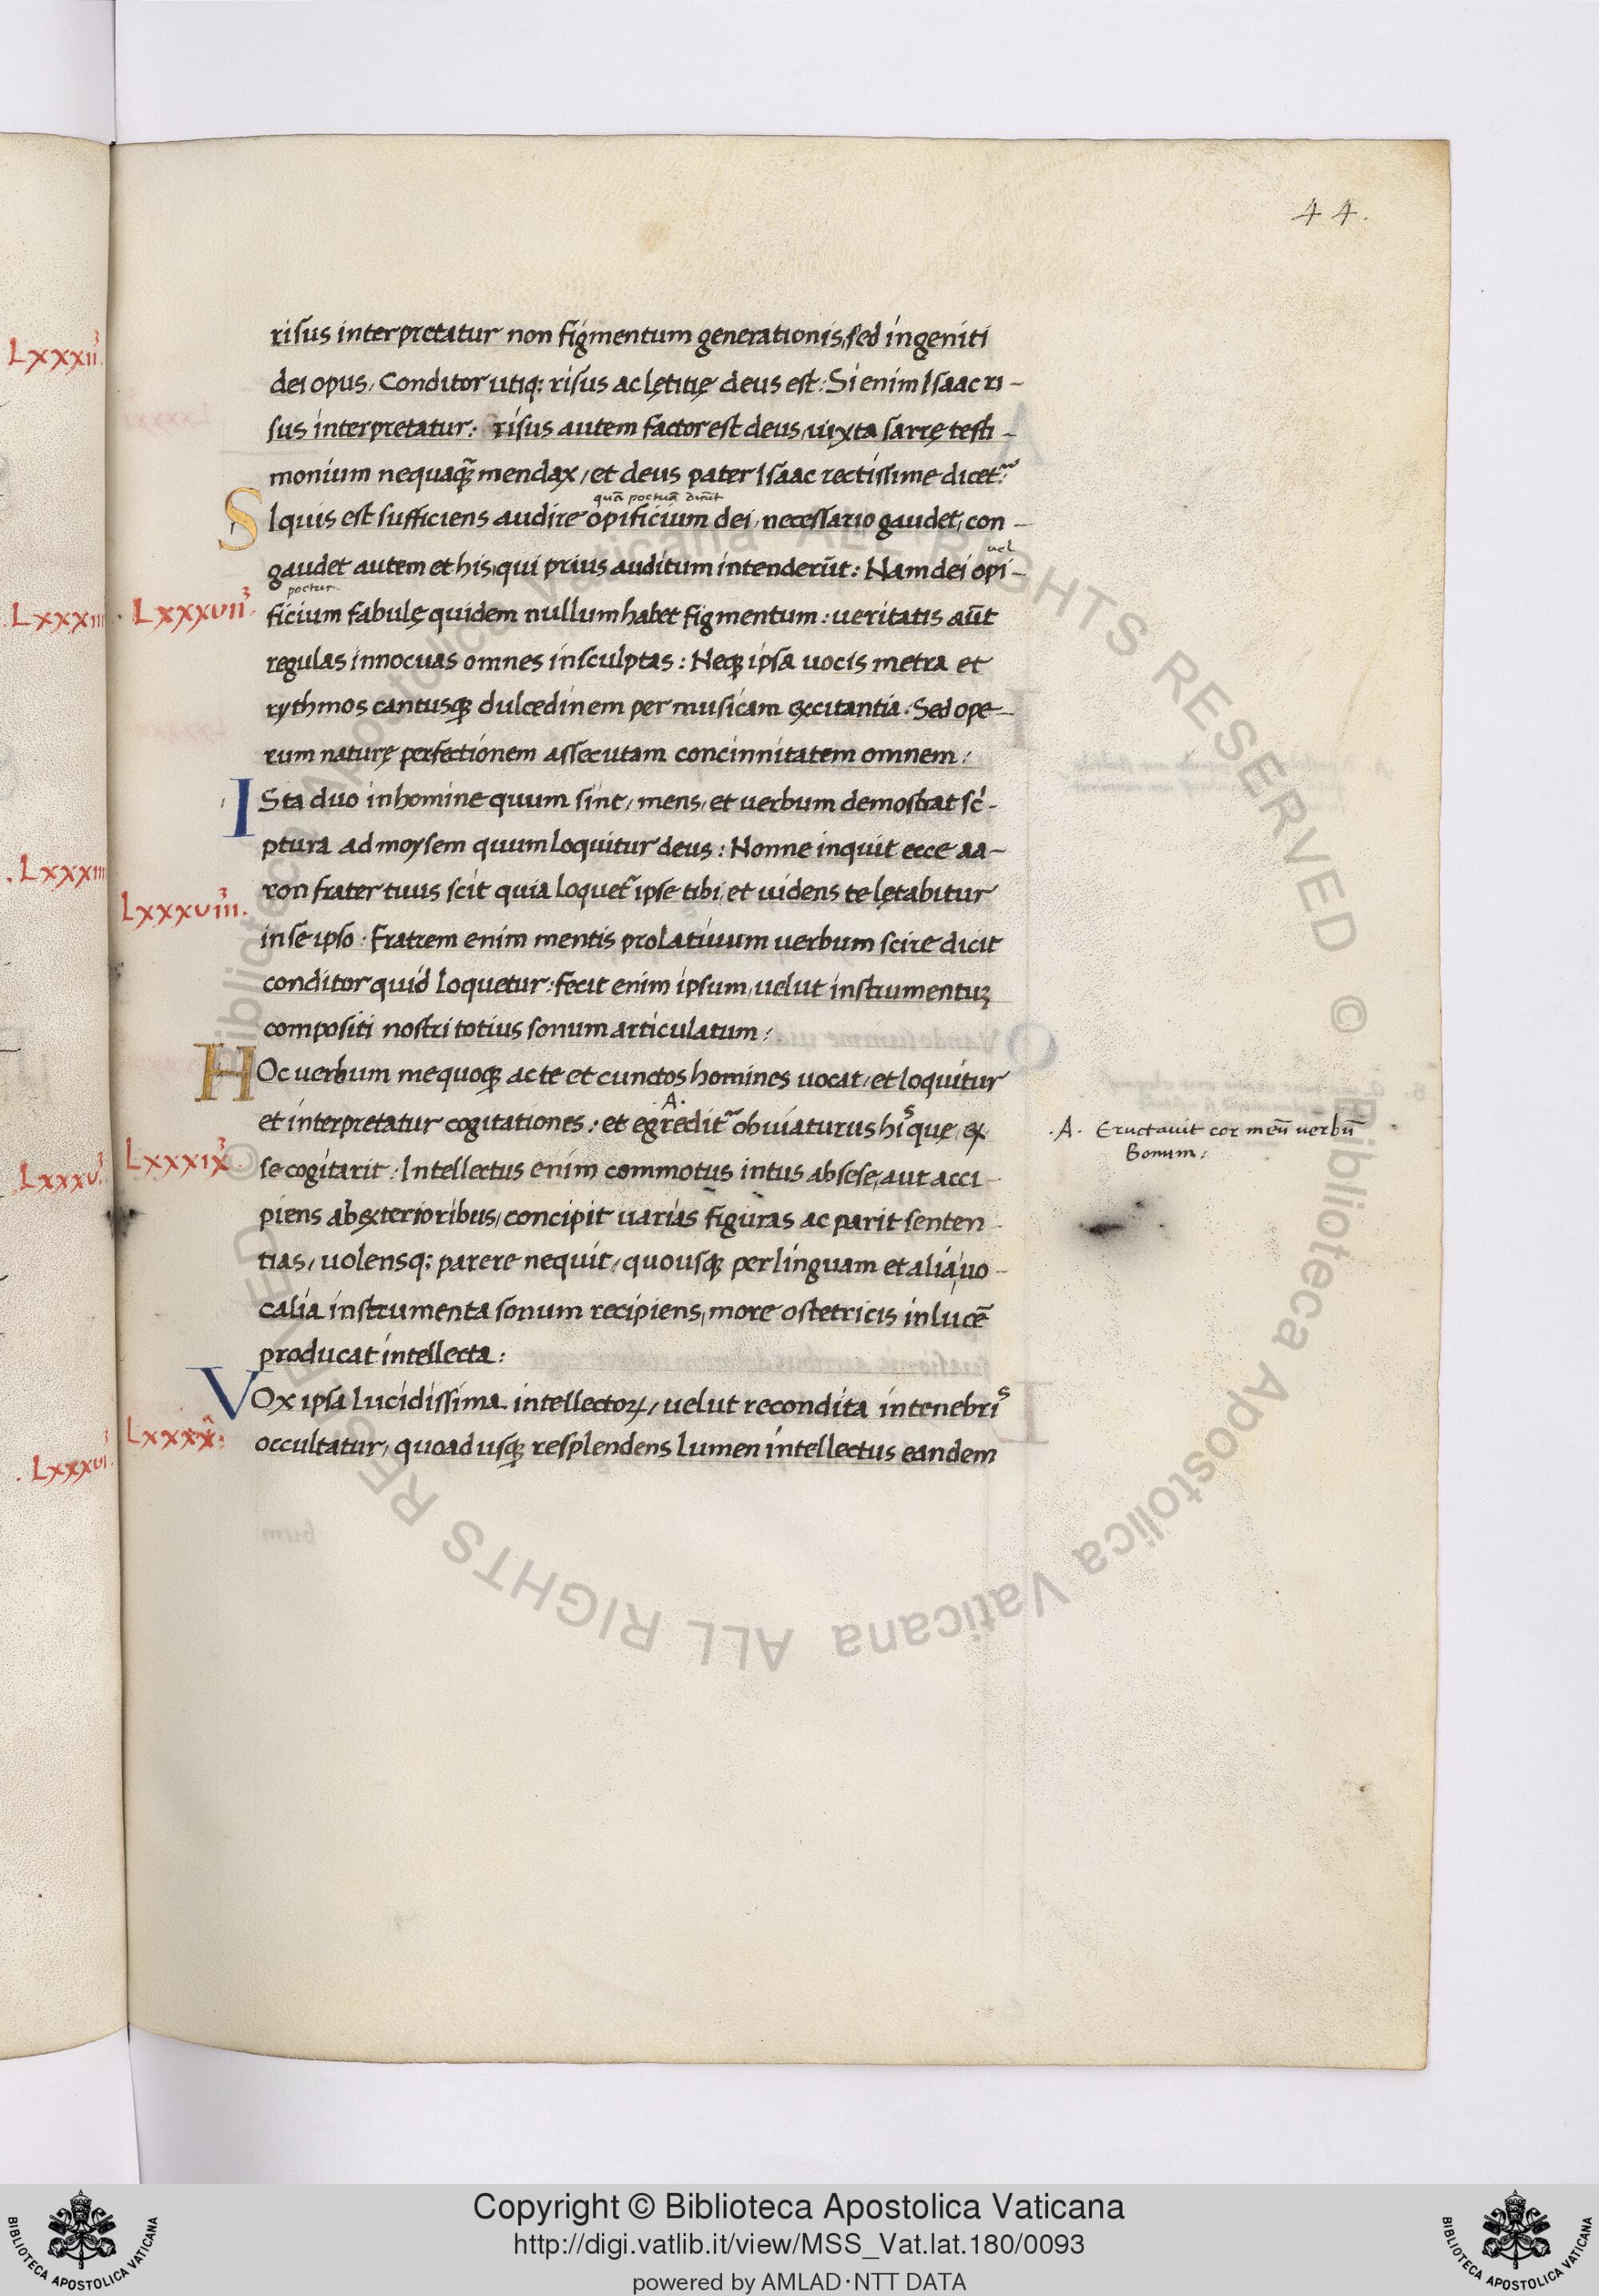 44.
risus interpretatur non figmentum generationis, sed ingeniti
dei opus, Conditor utiq; risus ac lętitię deus est: Si enim Isaac ri-
sus interpretatur: risus autem factor est deus, iuxta sarrę testi-
monium nequaq̃ mendax, et deus pater Isaac rectissime dicet̃
quā poetuā dn̄t
SIquis est sufficiens audire opificium dei, necessario gaudet, con-
uel
gaudet autem et his, qui prius auditum intenderūt: Nam dei opi-
poetur
Lxxxvii. ficium fabulę quidem nullum habet figmentum: veritatis aūt
regulas innocuas omnes insculptas: Neq; ipsa uocis metra et
rythmos cantusq; dulcedinem per musicam excitantia. Sed ope-
rum naturę perfectionem assecutam concinnitatem omnem:
ISta duo in homine quum sint, mens, et uerbum demostrat sc̄-
ptura ad moysem quum loquitur deus: Nonne inquit ecce aa-
Lxxxviii. ron frater tuus scit quia loquet̃ ipse tibi, et uidens te lętabitur
in se ipso: Fratrem enim mentis prolatiuum uerbum scire dicit
conditor quid loquetur: fecit enim ipsum, uelut instrumentuȝ
compositi nostri totius sonum articulatum:
HOc uerbum me quoq; ac te et cunctos homines uocat, et loquitur
.A.
et interpretatur cogitationes: et egredit̃ obuiaturus hisque, ex
.A. Eructauit cor meū uerbū
Bonum:
Lxxxix. se cogitarit: Intellectus enim commotus intus ab sese, aut acci-
piens ab exterioribus, concipit uarias figuras ac parit senten-
tias, uolensq; parere nequit, quousq; per linguam et alia uo-
calia instrumenta sonum recipiens, more ostetricis in lucē
producat intellecta:
VOx ipsa lucidissima intellectoꝝ, uelut recondita in tenebris
Lxxxx. occultatur, quoad usq; resplendens lumen intellectus eandem
Lxxxii.
Lxxxiii
.Lxxxiiii
Lxxxv.
.Lxxxvi.
Copyright © Biblioteca Apostolica Vaticana
http://digi.vatlib.it/view/MSS_Vat.lat.180/0093
powered by AMLAD·NTT DATA
BIBLIOTECA APOSTOLICA VATICANA
BIBLIOTECA APOSTOLICA VATICANA
© Biblioteca Apostolica Vaticana ALL RIGHTS RESERVED © Biblioteca Apostolica Vaticana ALL RIGHTS RESERVED